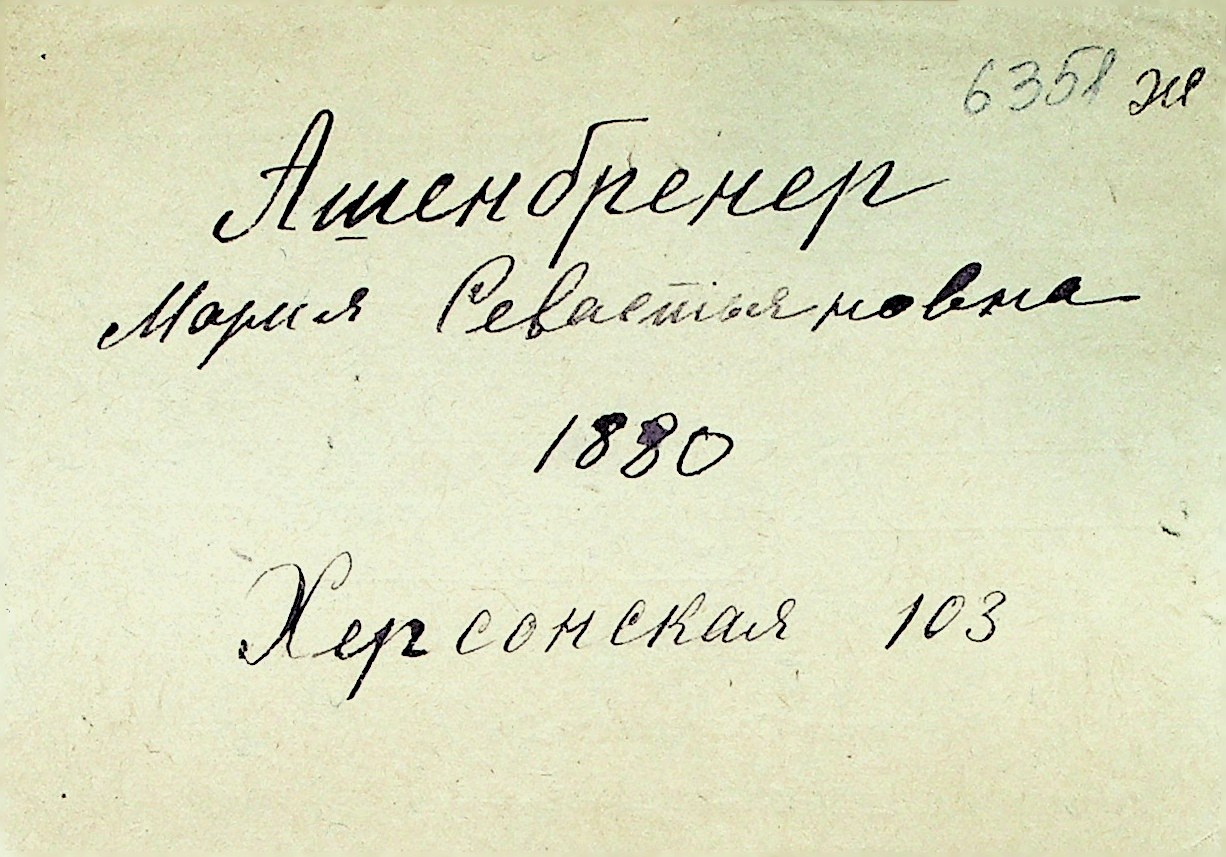 6351 же
Ашенбренер
Мария Севастьяновна
1880
Херсонская 103